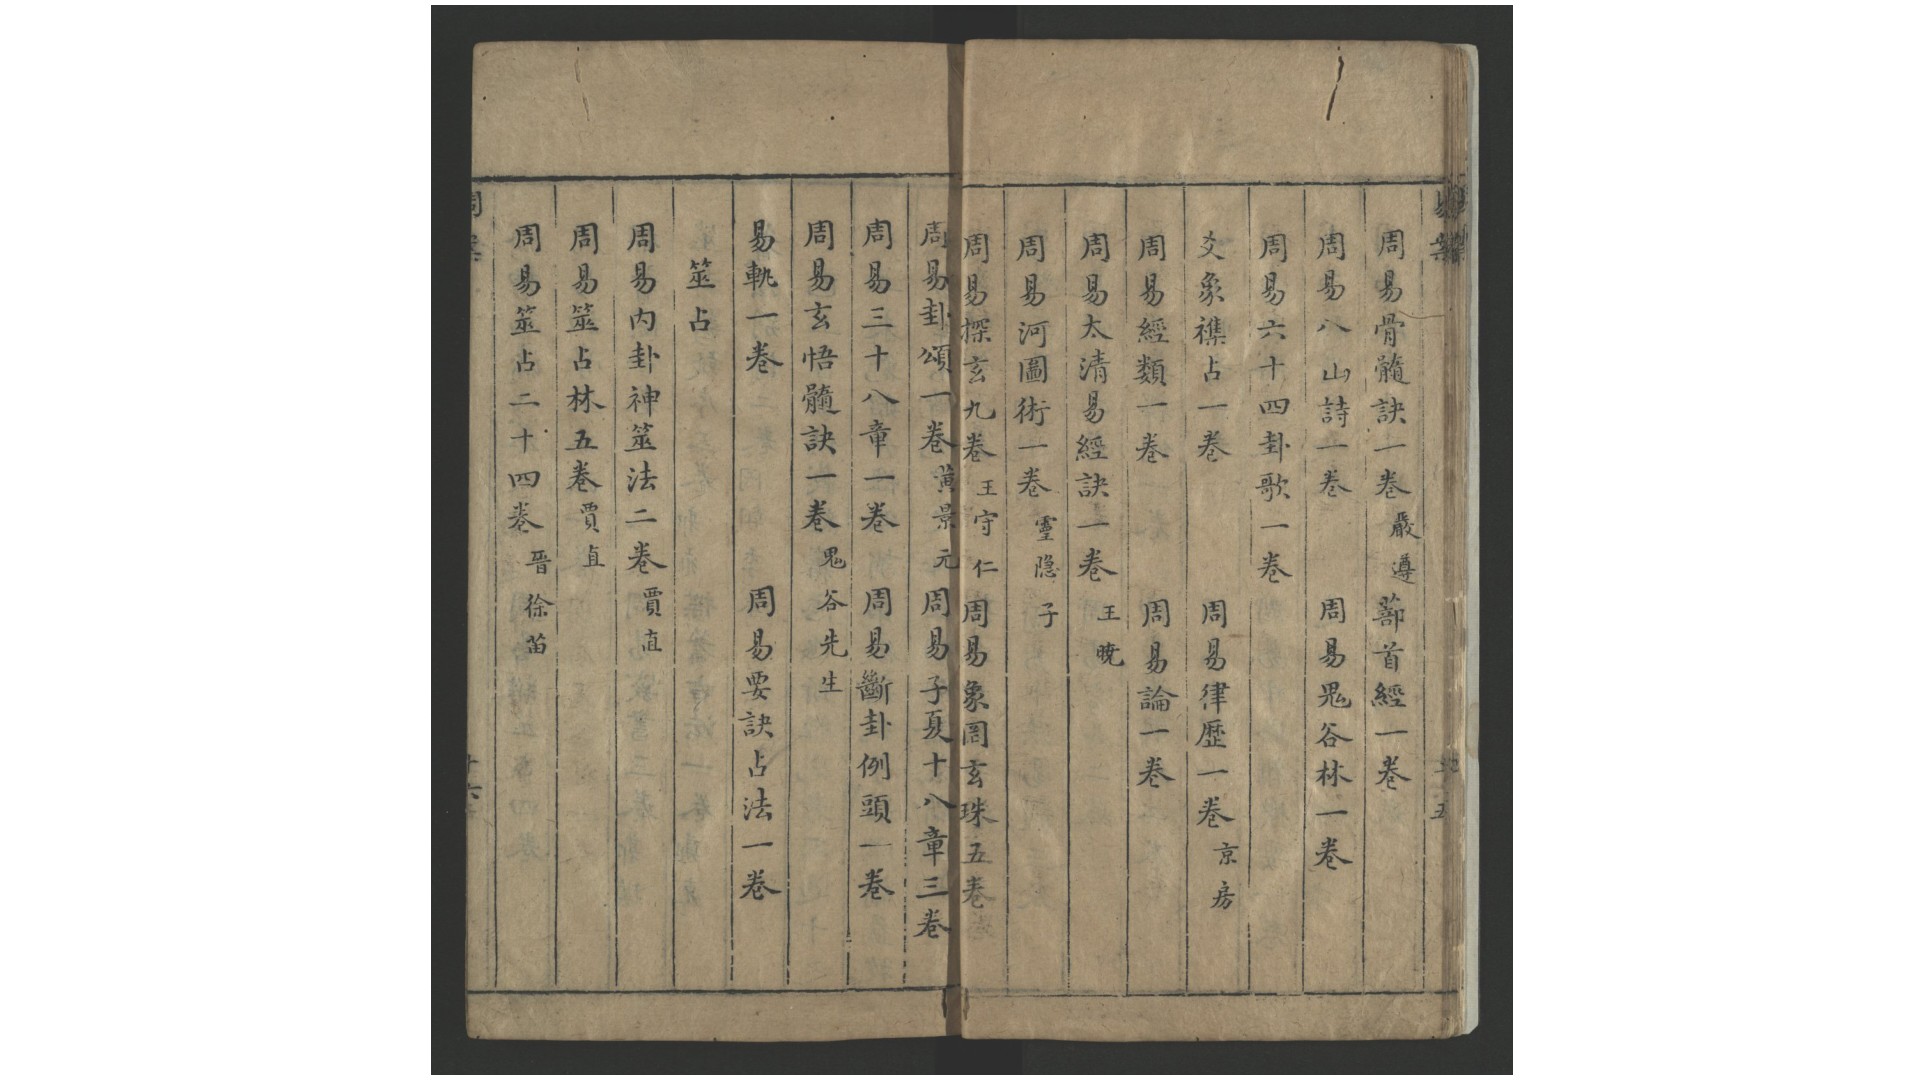 周易骨髓訣一卷 嚴遵 蔀首經一卷
周易八山詩一卷 周易鬼谷林一卷
周易六十四卦歌一卷
爻象襍占一卷 周易律歷一卷 京房
周易經類一卷 周易論一卷
周易太清易經訣一卷 王曉
周易河圖術一卷 靈隐子
周易探玄九卷 王守仁 周易象罔玄珠五卷
周易卦頌一卷 黃景元 周易子夏十八章三卷
周易三十八章一卷 周易斷卦例頭一卷
周易玄悟髓訣一卷 鬼谷先生
易軌一卷 周易要訣占法一卷
筮占
周易内卦神筮法二卷 賈直
周易筮占林五卷 賈直
周易筮占二十四卷 晋徐苗